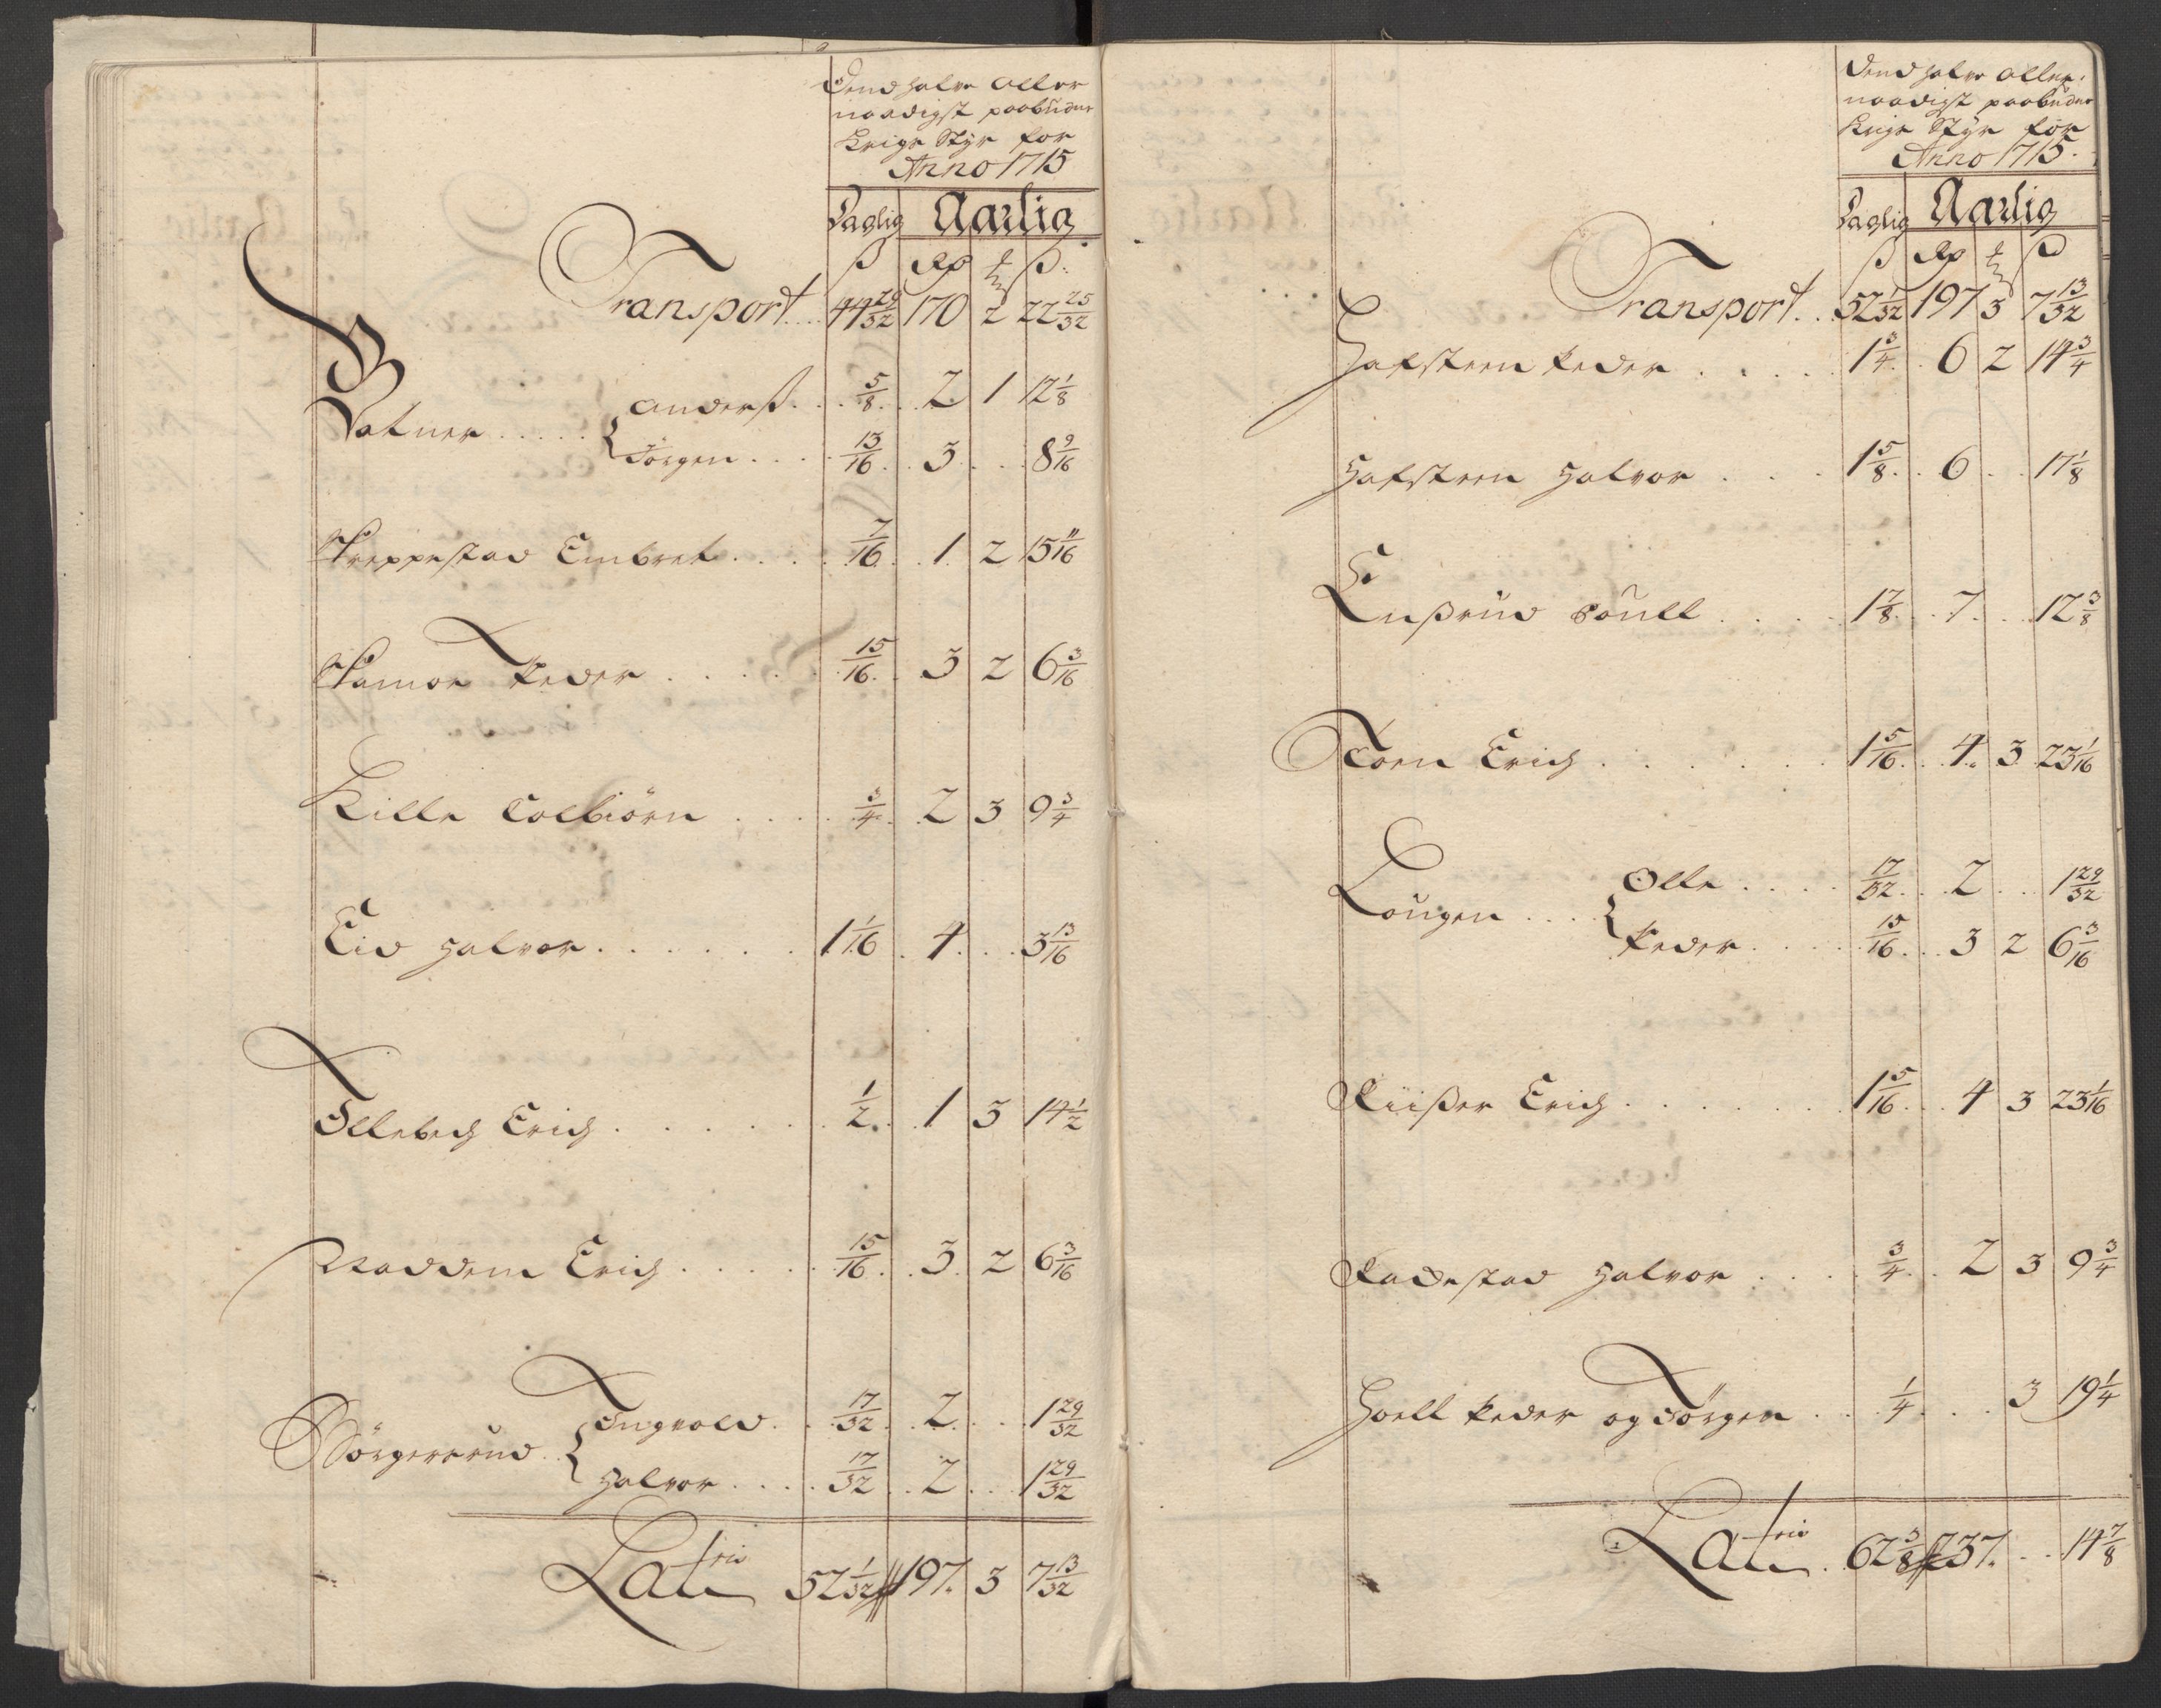 Dend halve aller
naadigst paabudne
Krigs Styr for
Anno 1715
Daglig Aarlig
ß Rg ß
Transport 44 29/32 170 2 22 25/32
Vatner
Anderß 5/8 2 1 12 1/8
Jörgen 13/16 3 8 9/16
Treppestad Embret 7/16 1 2 15 11/16
Tamoe Peder 15/16 3 2 6 3/16
Kille Colbiörn 3/4 2 3 9 3/4
Eid Halvor 1 1/16 4 3 13/16
Ellebech Erich 1/2 1 3 14 1/2
Naddem Erich 15/16 3 2 6 3/16
Börgerrud
Ingvold 17/32 2 1 29/32
Halvor 17/32 2 1 29/32
Latris 52 1/32 197 3 7 13/32
Dend halve aller
naadigst paabudne
Krigs Styr for
Anno 1715.
Daglig Aarlig
ß Rg ß
Transport 52 1/32 197 3 7 13/32
Hafsteen Peder 1 3/4 6 2 14 3/4
Hafsteen Halvor 1 5/8 6 17 1/8
Enßrud Poull 1 7/8 7 12 3/8
Torn Erich 1 5/16 4 3 23 1/16
Lougen
Olle 17/32 2 1 29/32
Peder 15/16 3 2 6 3/16
Riißer Erich 1 5/16 4 3 23 1/16
Radestad Halvor 3/4 2 3 9 3/4
Hoell Peder og Jörgen 1/4 3 19 1/4
Latris 62 3/8 237 14 7/8